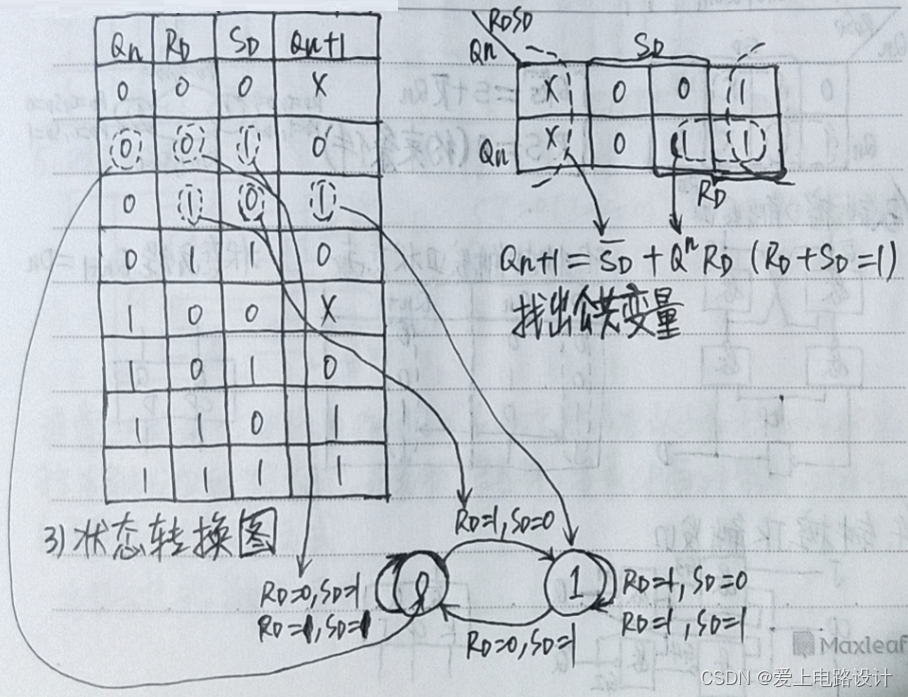 Qn RD SD Qn+1
0 0 0 X
0 0 1 0
0 1 0 1
0 1 1 0
1 0 0 X
1 0 1 0
1 1 0 1
1 1 1 1
RDSD
Qn
SD
X 0 0 1
Qn X 0 1 1
RD
Qn+1 = S̅D + Qⁿ RD (RD+SD=1)
找出公共变量
3) 状态转换图
RD=1, SD=0
0 1
RD=0, SD=1
RD=1, SD=1
RD=1, SD=0
RD=1, SD=1
RD=0, SD=1
Maxleaf
CSDN @爱上电路设计